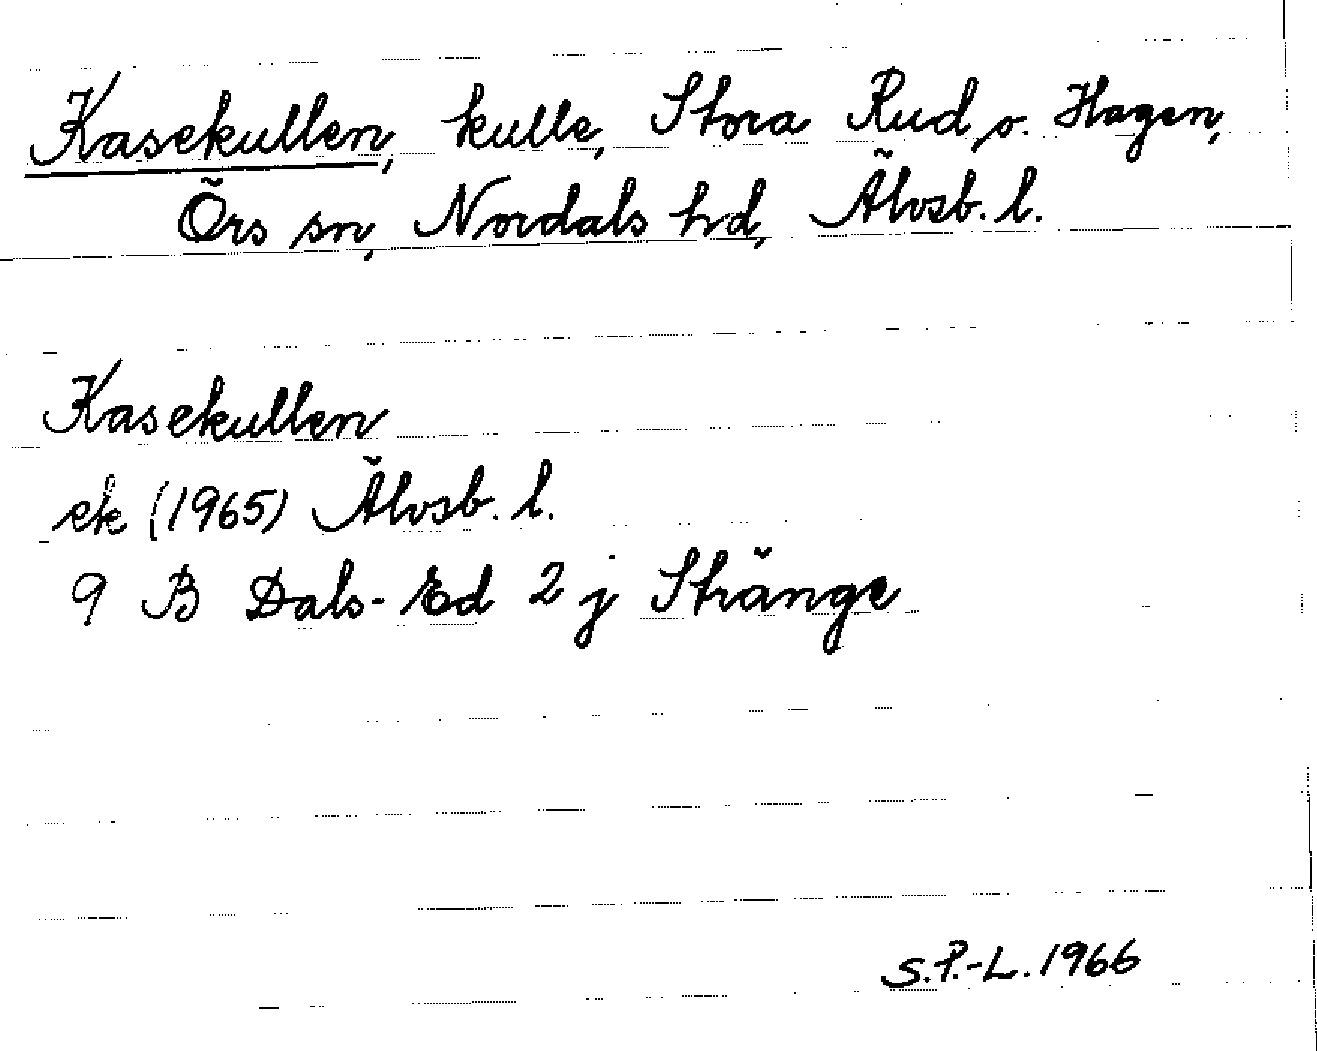 Kasekullen, kulle, Stora Rud o. Hagen,
Örs sn, Nordals hd, Älvsb. l.
Kasekullen
ek (1965) Älvsb. l.
9 B Dals-Ed 2 j Stränge
S.P.-L. 1966